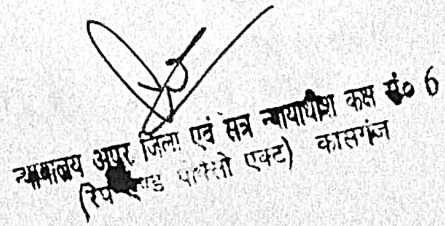 न्यायालय अपर जिला एवं सत्र न्यायाधीश कक्ष सं० 6
(रेप एण्ड पॉक्सो एक्ट) कासगंज